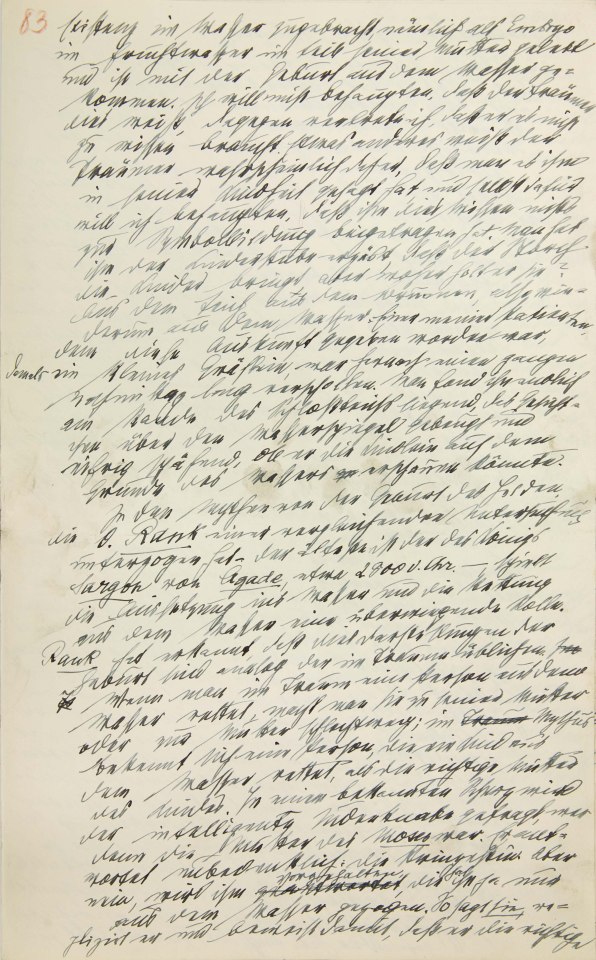 83
Existenz im Wasser zugebracht, nämlich als Embryo
im Fruchtwasser im Leib seiner Mutter gelebt
und ist mit der Geburt aus dem Wasser ge-
kommen. Ich will nicht behaupten, daß der Träumer
dies weiß, dagegen vertrete ich, daß er es nicht
zu wissen braucht. Etwas anderes weiß der
Träumer wahrscheinlich daher, daß man es ihm
in seiner Kindheit gesagt hat und selbst dafür
will ich behaupten, daß ihm dies Wissen nichts
zur Symbolbildung beigetragen hat. Man hat
ihm in der Kinderstube erzählt, daß der Storch
die Kinder bringt, aber woher holt er sie?
Aus dem Teich, aus dem Brunnen, also wie-
derum aus dem Wasser. Einer meiner Patienten,
dem diese Auskunft gegeben worden war,
damals ein kleines Gräflein, war hernach einen ganzen
Nachmittag lang verschollen. Man fand ihn endlich
am Rande des Schloßteichs liegend, das Gesicht-
chen über den Wasserspiegel gebeugt und
eifrig spähend, ob er die Kindlein auf dem
Grunde des Wassers erschauen könnte.
In den Mythen von der Geburt des Helden,
die O. Rank einer vergleichenden Untersuchung
unterzogen hat – der älteste ist der des Königs
Sargon von Agade, etwa 2800 v. Chr. – spielt
die Aussetzung ins Wasser und die Rettung
aus dem Wasser eine überwiegende Rolle.
Rank hat erkannt, daß dies Darstellungen der
Geburt sind, analog der im Traume üblichen.
Wenn man im Traum eine Person aus dem
Wasser rettet, macht man sie zu seiner Mutter
oder zur Mutter schlechtweg; im Traum Mythus
bekennt sich eine Person, die ein Kind aus
dem Wasser rettet, als die richtige Mutter
des Kindes. In einem bekannten Scherz wird
der intelligente Judenknabe gefragt, wer
denn die Mutter des Moses war. Er ant-
wortet unbedenklich: die Prinzessin. Aber
nein, wird ihm vorgehalten, die hat ihn ja nur
aus dem Wasser gezogen. So sagt sie, re-
pliziert er und beweist damit, daß er die richtige